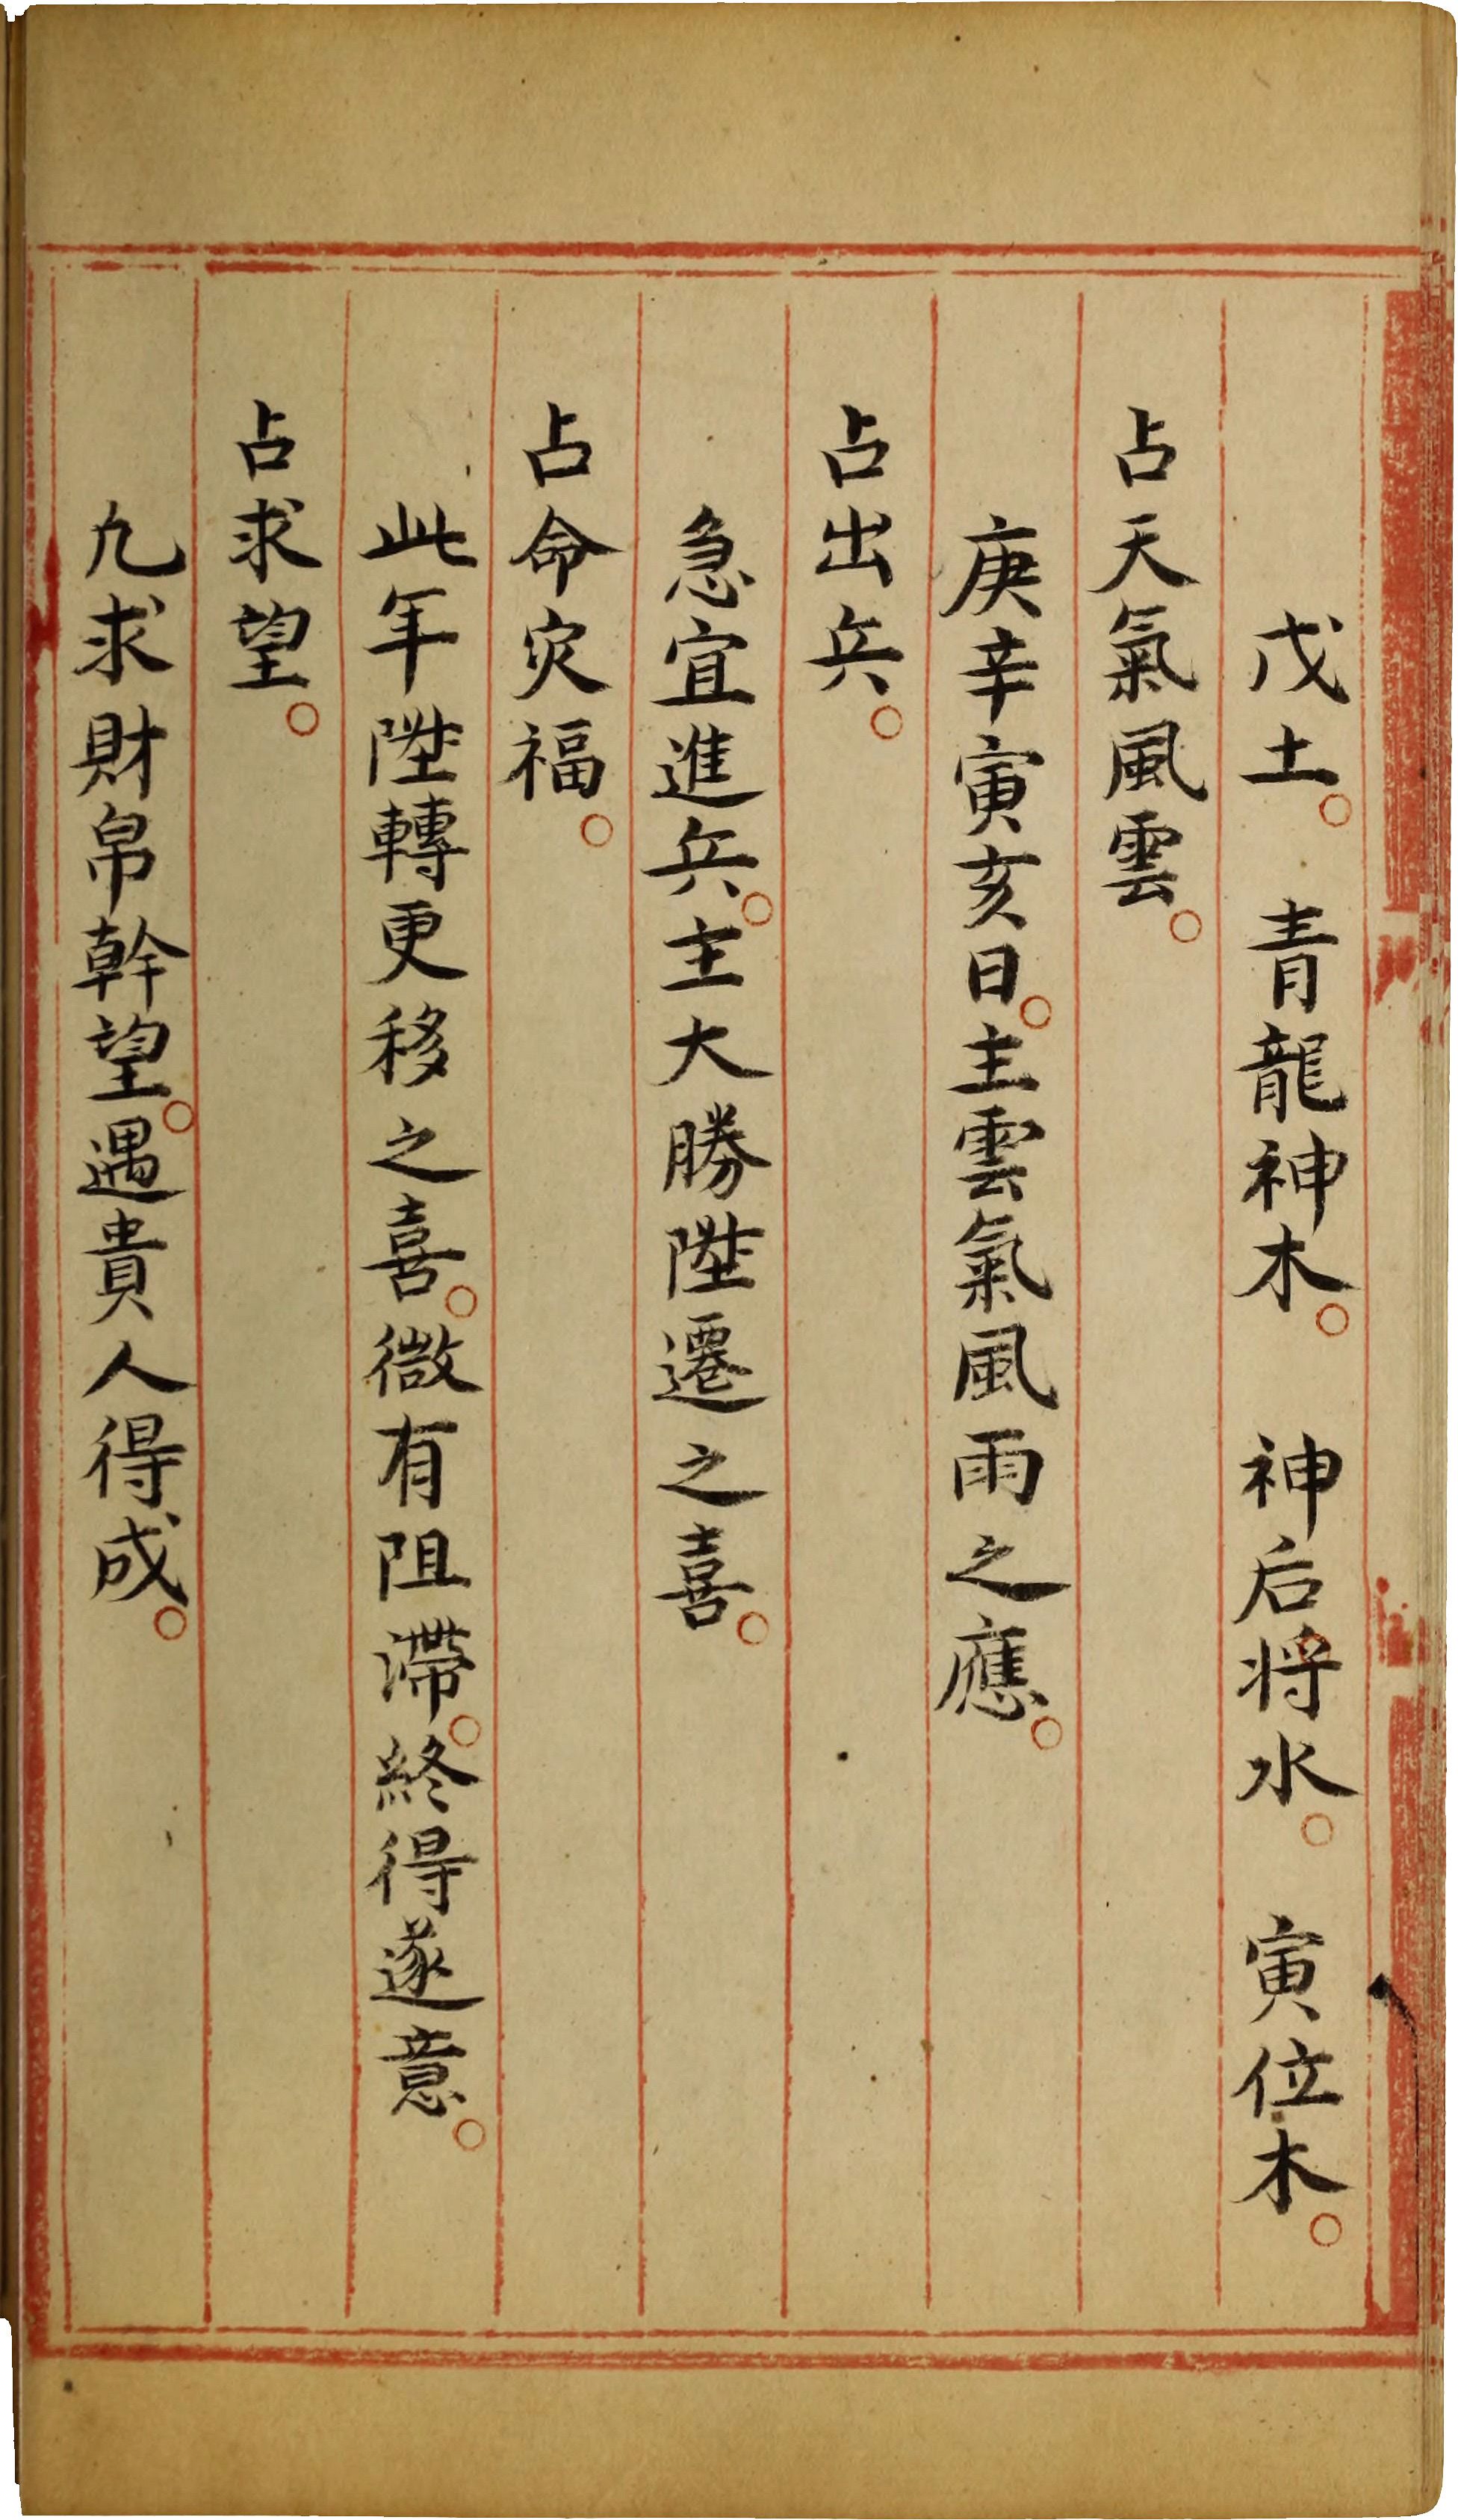 戊土。　青龍神木。　神后将水。　寅位木。
占天氣風雲。
庚辛寅亥日。主雲氣風雨之應。
占出兵。
急宜進兵。主大勝陞遷之喜。
占命灾福。
此年陞轉更移之喜。微有阻滯。終得遂意。
占求望。
凢求財帛幹望。遇貴人得成。